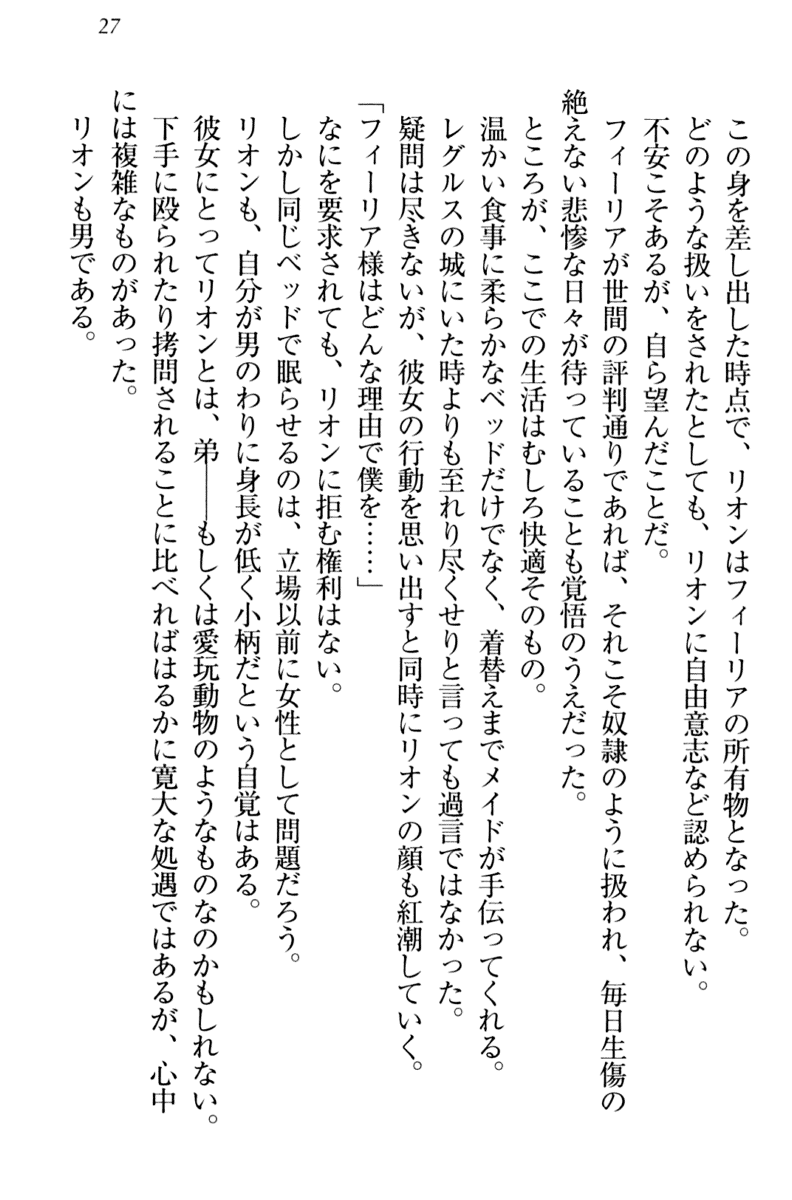 27
この身を差し出した時点で、リオンはフィーリアの所有物となった。
どのような扱いをされたとしても、リオンに自由意志など認められない。
不安こそあるが、自ら望んだことだ。
フィーリアが世間の評判通りであれば、それこそ奴隷のように扱われ、毎日生傷の
絶えない悲惨な日々が待っていることも覚悟のうえだった。
ところが、ここでの生活はむしろ快適そのもの。
温かい食事に柔らかなベッドだけでなく、着替えまでメイドが手伝ってくれる。
レグルスの城にいた時よりも至れり尽くせりと言っても過言ではなかった。
疑問は尽きないが、彼女の行動を思い出すと同時にリオンの顔も紅潮していく。
「フィーリア様はどんな理由で僕を……」
なにを要求されても、リオンに拒む権利はない。
しかし同じベッドで眠らせるのは、立場以前に女性として問題だろう。
リオンも、自分が男のわりに身長が低く小柄だという自覚はある。
彼女にとってリオンとは、弟――もしくは愛玩動物のようなものなのかもしれない。
下手に殴られたり拷問されることに比べればはるかに寛大な処遇ではあるが、心中
には複雑なものがあった。
リオンも男である。